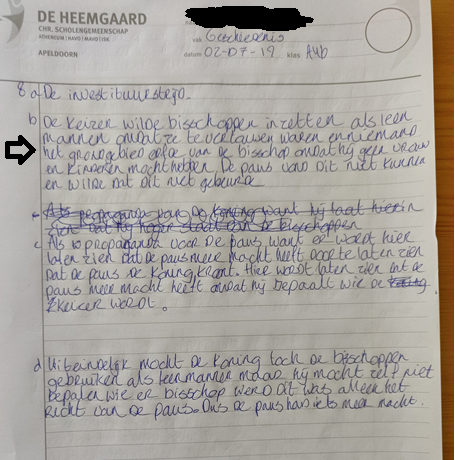 DE HEEMGAARD
CHR. SCHOLENGEMEENSCHAP
ATHENEUM / HAVO / MAVO / ISK
APELDOORN
vak Geschiedenis
datum 02-07-19 klas A4b
8 a De investituurstrijd.
b De Keizer wilde bisschoppen inzetten als leen
mannen omdat ze te vertrouwen waren en niemand
het grondgebied erfde van de bisschop omdat hij geen vrouw
en kinderen mocht hebben. De paus vond dit niet kunnen
en wilde dat dit niet gebeurde
c Als propaganda van De Koning want hij laat hierin
zien dat hij hoger staat dan de bisschoppen
c Als propaganda voor De paus want er wordt hier
laten zien dat de paus meer macht heeft door te laten zien
dat de paus de Koning kroont. Hier wordt laten zien dat de
paus meer macht heeft omdat hij bepaalt wie de
Keizer wordt.
d Uiteindelijk mocht de Koning toch de bisschoppen
gebruiken als leenmannen maar hij mocht zelf niet
bepalen wie er bisschop werd dit was alleen het
recht van de paus. Dus de paus had iets meer macht.